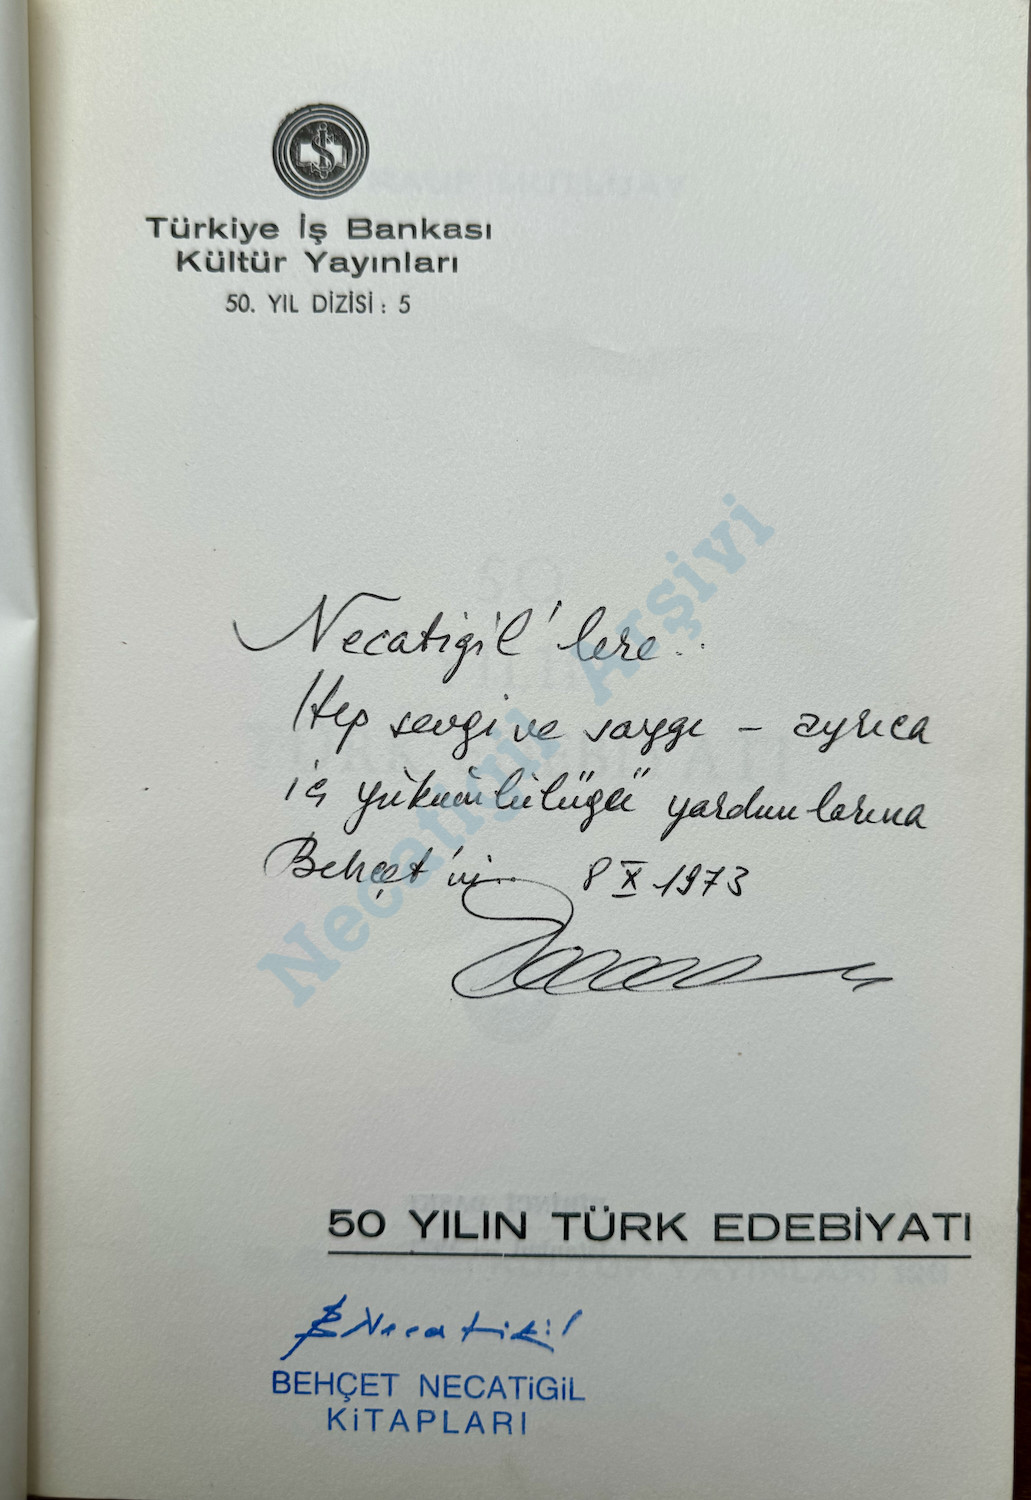 Türkiye İş Bankası
Kültür Yayınları
50. YIL DİZİSİ : 5
Necatigil'lere..
Hep sevgi ve saygı – ayrıca
iç yükümlülüğü yardımlarına
Behçet'in.. 8 X 1973
50 YILIN TÜRK EDEBİYATI
B Necatigil
BEHÇET NECATiGiL
KiTAPLARI
Necatigil Arşivi